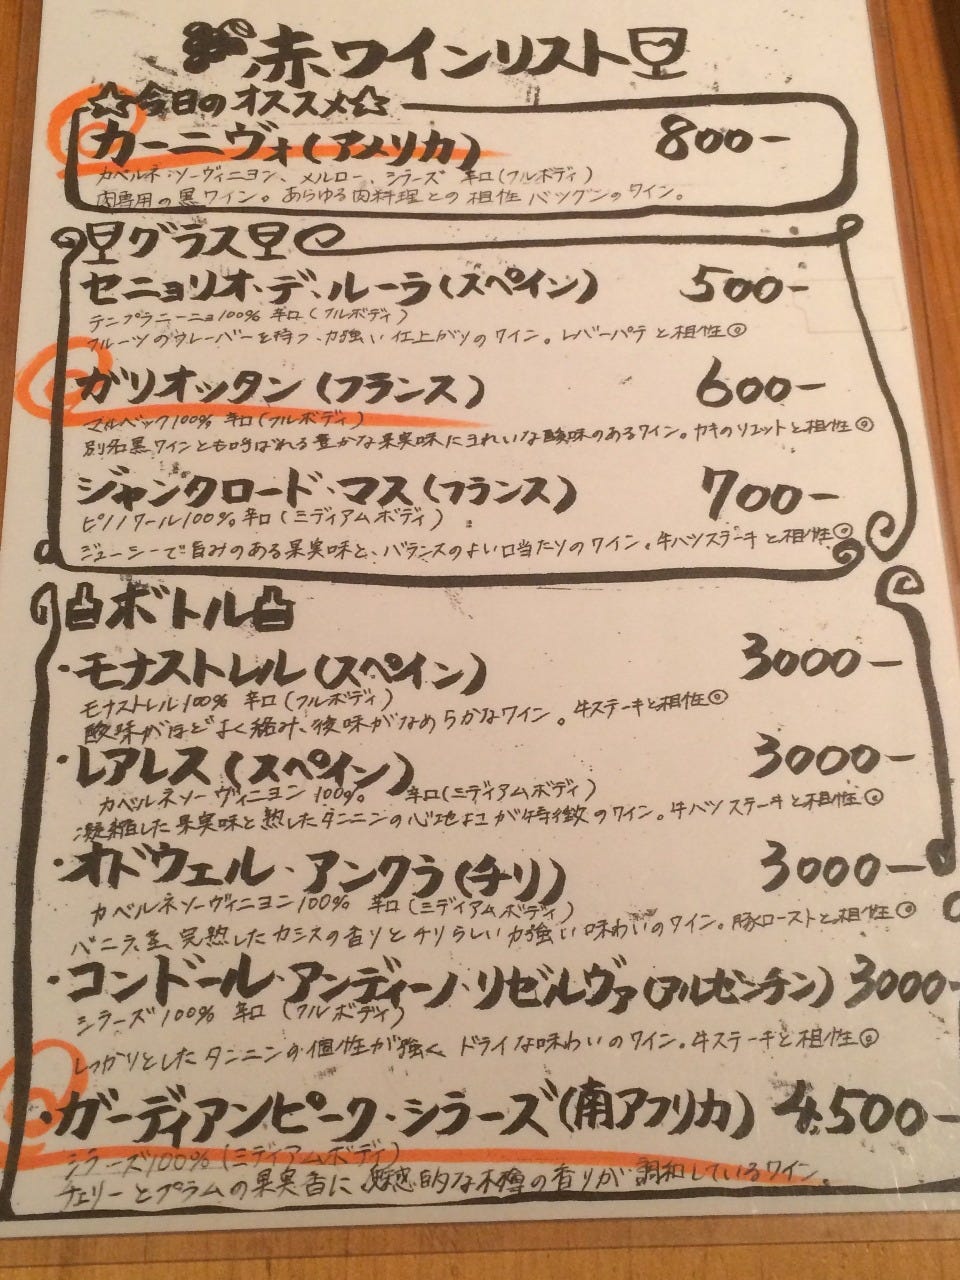 赤ワインリスト
☆今日のオススメ☆
カーニヴォ(アメリカ) 800-
カベルネ・ソーヴィニヨン、メルロー、シラーズ 辛口(フルボディ)
肉専用の黒ワイン。あらゆる肉料理との相性バツグンのワイン。
グラス
セニョリオ・デ・ルーラ(スペイン) 500-
テンプラニーニョ100% 辛口(フルボディ)
フルーツのフレーバーを持つ、力強い仕上がりのワイン。レバーパテと相性◎
ガリオッタン(フランス) 600-
マルベック100% 辛口(フルボディ)
別名黒ワインとも呼ばれる豊かな果実味にきれいな酸味のあるワイン。カキのリエットと相性◎
ジャンクロード・マス(フランス) 700-
ピノノワール100% 辛口(ミディアムボディ)
ジューシーで旨みのある果実味と、バランスのよい口当たりのワイン。牛ハツステーキと相性◎
ボトル
・モナストレル(スペイン) 3000-
モナストレル100% 辛口(フルボディ)
酸味がほどよく絡み、後味がなめらかなワイン。牛ステーキと相性◎
・レアレス(スペイン) 3000-
カベルネソーヴィニヨン100% 辛口(ミディアムボディ)
凝縮した果実味と熟したタンニンの心地よさが特徴のワイン。牛ハツステーキと相性◎
・オドウェル・アンクラ(チリ) 3000-
カベルネソーヴィニヨン100% 辛口(ミディアムボディ)
バニラ、茎、完熟したカシスの香りとチリらしい力強い味わいのワイン。豚ローストと相性◎
・コンドール・アンディーノ・リゼルヴァ(アルゼンチン) 3000-
シラーズ100% 辛口(フルボディ)
しっかりとしたタンニンの個性が強く、ドライな味わいのワイン。牛ステーキと相性◎
・ガーディアンピーク・シラーズ(南アフリカ) 4,500-
シラーズ100%(ミディアムボディ)
チェリーとプラムの果実香に魅惑的な木樽の香りが調和しているワイン。